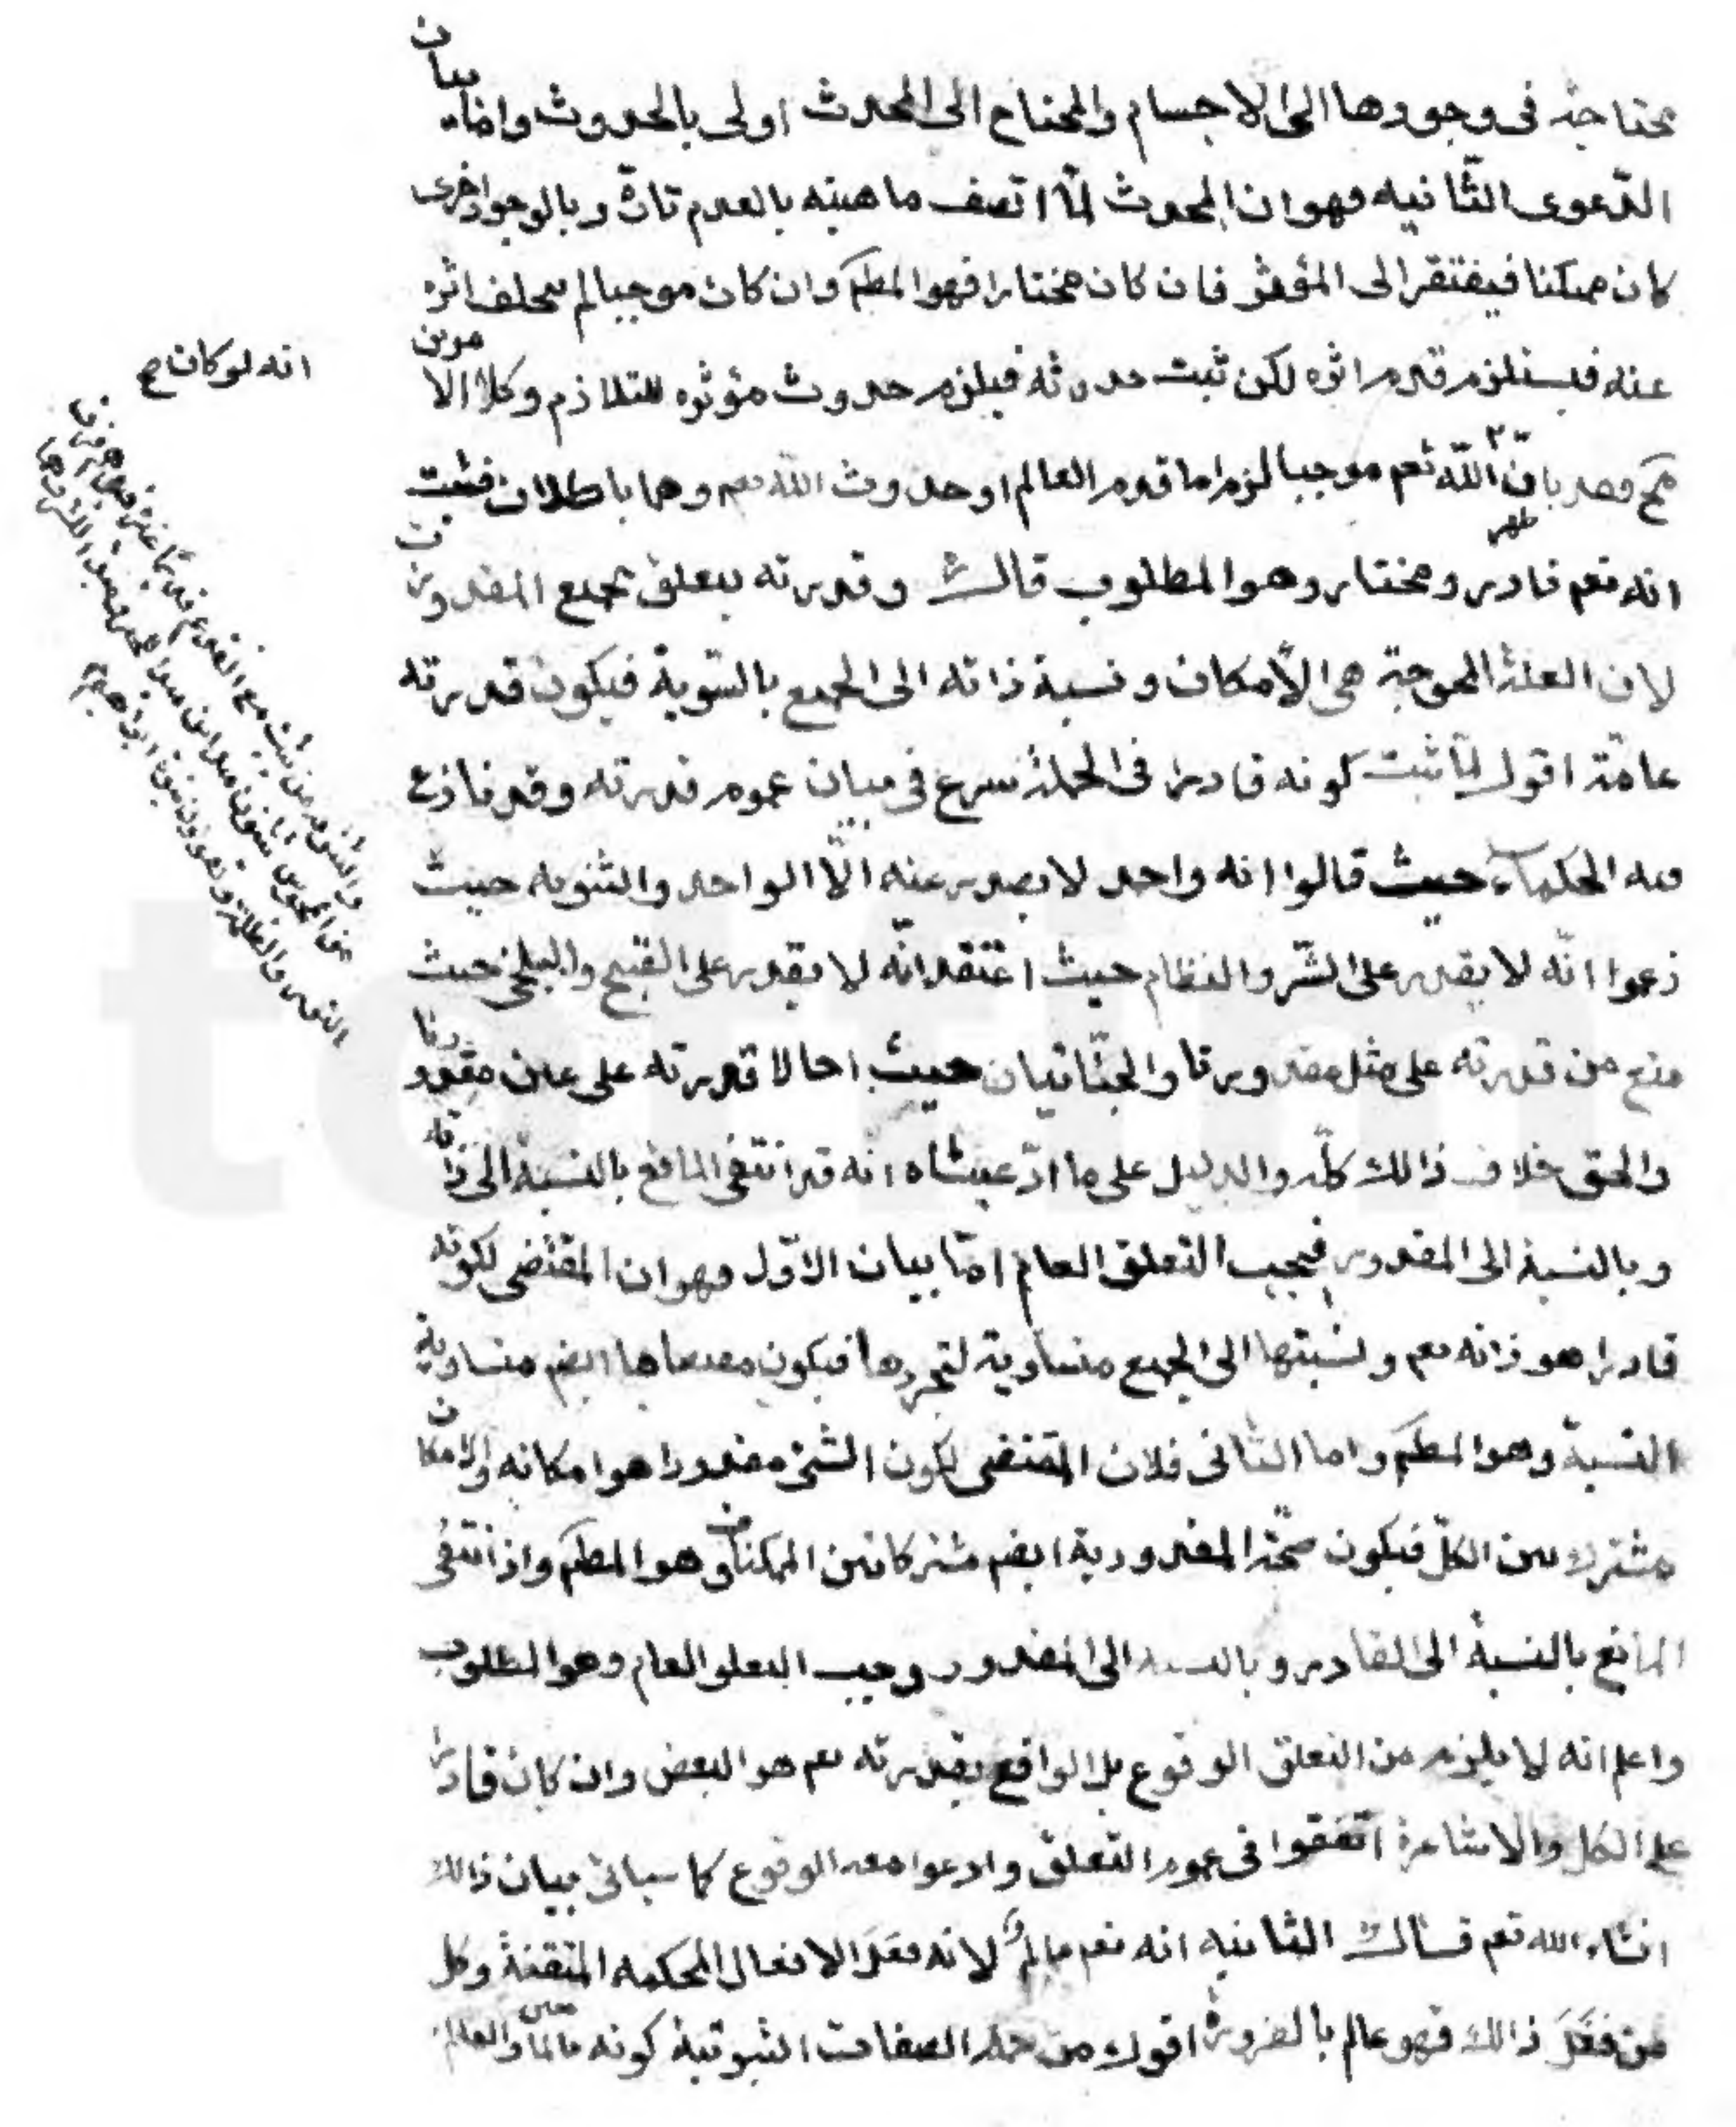 محتاجة فى وجودها الى الاجسام والمحتاج الى المحدث اولى بالحدوث واما بيان
الدّعوى الثّانيه فهو ان المحدث لمّا اتصف ماهيته بالعدم تارة وبالوجود اخرى
كان ممكنا فيفتقر الى المؤثر فان كان مختارا فهو المطم وان كان موجبا لم يتخلف اثره
عنه فيستلزم قدم اثره لكن ثبت حدوثه فيلزم حدوث مؤثره للتلازم وكلا الامرين
مح فقد بان انّ الله تعم موجبا لزم اما قدم العالم او حدوث الله تعم وهما باطلان فثبت
ظهر
انه لو كان صح
انه تعم قادر ومختار وهو المطلوب قال وقدرته يتعلق بجميع المقدورات
لان العلة المحوجة هى الأمكان ونسبة ذاته الى الجميع بالسّوية فيكون قدرته
عامّة اقول لمّا ثبت كونه قادرا فى الجملة شرع فى بيان عموم قدرته وقد نازع
فيه الحكماء حيث قالوا انه واحد لا يصدر عنه الّا الواحد والثنويه حيث
زعموا انّه لا يقدر على الشّر والنظام حيث اعتقد انّه لا يقدر على القبيح والبلخى حيث
منع من قدرته على مثل مقدورنا والجبّائيان حيث احالا قدرته على عين مقدورنا
والحق خلاف ذالك كلّه والدليل على ما ادّعيناه انّه قد انتفى المانع بالنسبة الى ذاته
وبالنسبة الى المقدور فيجب التعلق العام امّا بيان الاوّل فهو ان المقتضى لكونه
قادرا هو ذاته تعم ونسبتها الى الجميع متساوية لتجردها فيكون مقتضاها ايضم متساوية
النسبة وهو المطم واما الثانى فلان المقتضى لكون الشئ مقدورا هو امكانه والامكان
مشترك بين الكلّ فيكون صحّة المقدورية ايضم مشتركا بين الممكنات وهو المطم واذا انتفى
المانع بالنسبة الى القادر وبالنسبة الى المقدور وجب التعلق العام وهو المطلوب
واعلم انه لا يلزم من التعلق الوقوع بل الواقع بقدرته تعم هو البعض وان كان قادرا
على الكل والاشاعرة اتفقوا فى عموم التّعلق وادعوا معه الوقوع كما سيأتى بيان ذالك
انشاء الله تعم قال الثانيه انه تعم عالم لانه فعل الافعال المحكمه المتقنة وكل
من فعل ذالك فهو عالم بالضرورة اقول من جملة الصفات الثبوتية كونه تعالى عالما والعالم